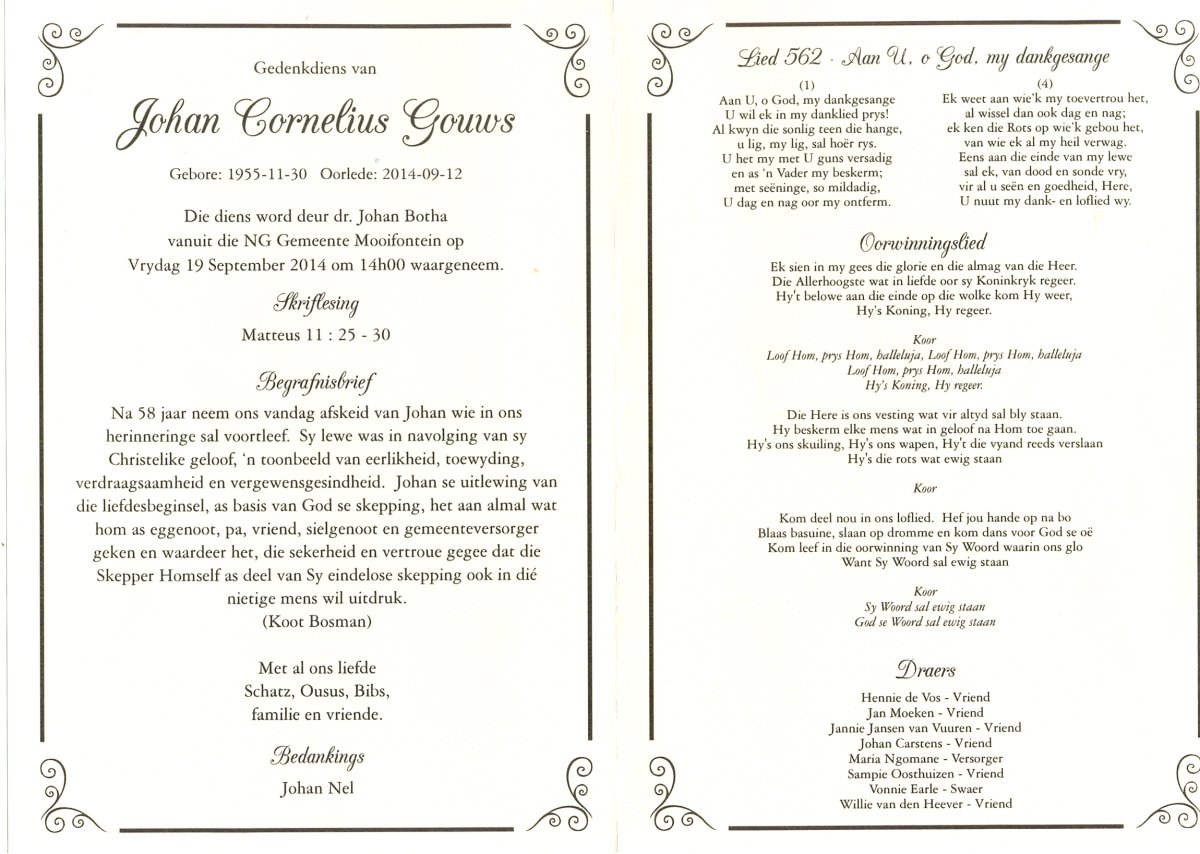 Gedenkdiens van
Johan Cornelius Gouws
Gebore: 1955-11-30 Oorlede: 2014-09-12
Die diens word deur dr. Johan Botha
vanuit die NG Gemeente Mooifontein op
Vrydag 19 September 2014 om 14h00 waargeneem.
Skriflesing
Matteus 11 : 25 - 30
Begrafnisbrief
Na 58 jaar neem ons vandag afskeid van Johan wie in ons
herinneringe sal voortleef. Sy lewe was in navolging van sy
Christelike geloof, ‘n toonbeeld van eerlikheid, toewyding,
verdraagsaamheid en vergewensgesindheid. Johan se uitlewing van
die liefdesbeginsel, as basis van God se skepping, het aan almal wat
hom as eggenoot, pa, vriend, sielgenoot en gemeenteversorger
geken en waardeer het, die sekerheid en vertroue gegee dat die
Skepper Homself as deel van Sy eindelose skepping ook in dié
nietige mens wil uitdruk.
(Koot Bosman)
Met al ons liefde
Schatz, Ousus, Bibs,
familie en vriende.
Bedankings
Johan Nel
Lied 562 - Aan U, o God, my dankgesange
(1)
Aan U, o God, my dankgesange
U wil ek in my danklied prys!
Al kwyn die sonlig teen die hange,
u lig, my lig, sal hoër rys.
U het my met U guns versadig
en as ‘n Vader my beskerm;
met seëninge, so mildadig,
U dag en nag oor my ontferm.
(4)
Ek weet aan wie’k my toevertrou het,
al wissel dan ook dag en nag;
ek ken die Rots op wie’k gebou het,
van wie ek al my heil verwag.
Eens aan die einde van my lewe
sal ek, van dood en sonde vry,
vir al u seën en goedheid, Here,
U nuut my dank- en loflied wy.
Oorwinningslied
Ek sien in my gees die glorie en die almag van die Heer.
Die Allerhoogste wat in liefde oor sy Koninkryk regeer.
Hy’t belowe aan die einde op die wolke kom Hy weer,
Hy’s Koning, Hy regeer.
Koor
Loof Hom, prys Hom, halleluja, Loof Hom, prys Hom, halleluja
Loof Hom, prys Hom, halleluja
Hy’s Koning, Hy regeer.
Die Here is ons vesting wat vir altyd sal bly staan.
Hy beskerm elke mens wat in geloof na Hom toe gaan.
Hy's ons skuiling, Hy's ons wapen, Hy't die vyand reeds verslaan
Hy's die rots wat ewig staan
Koor
Kom deel nou in ons loflied. Hef jou hande op na bo
Blaas basuine, slaan op dromme en kom dans voor God se oë
Kom leef in die oorwinning van Sy Woord waarin ons glo
Want Sy Woord sal ewig staan
Koor
Sy Woord sal ewig staan
God se Woord sal ewig staan
Draers
Hennie de Vos - Vriend
Jan Moeken - Vriend
Jannie Jansen van Vuuren - Vriend
Johan Carstens - Vriend
Maria Ngomane - Versorger
Sampie Oosthuizen - Vriend
Vonnie Earle - Swaer
Willie van den Heever - Vriend